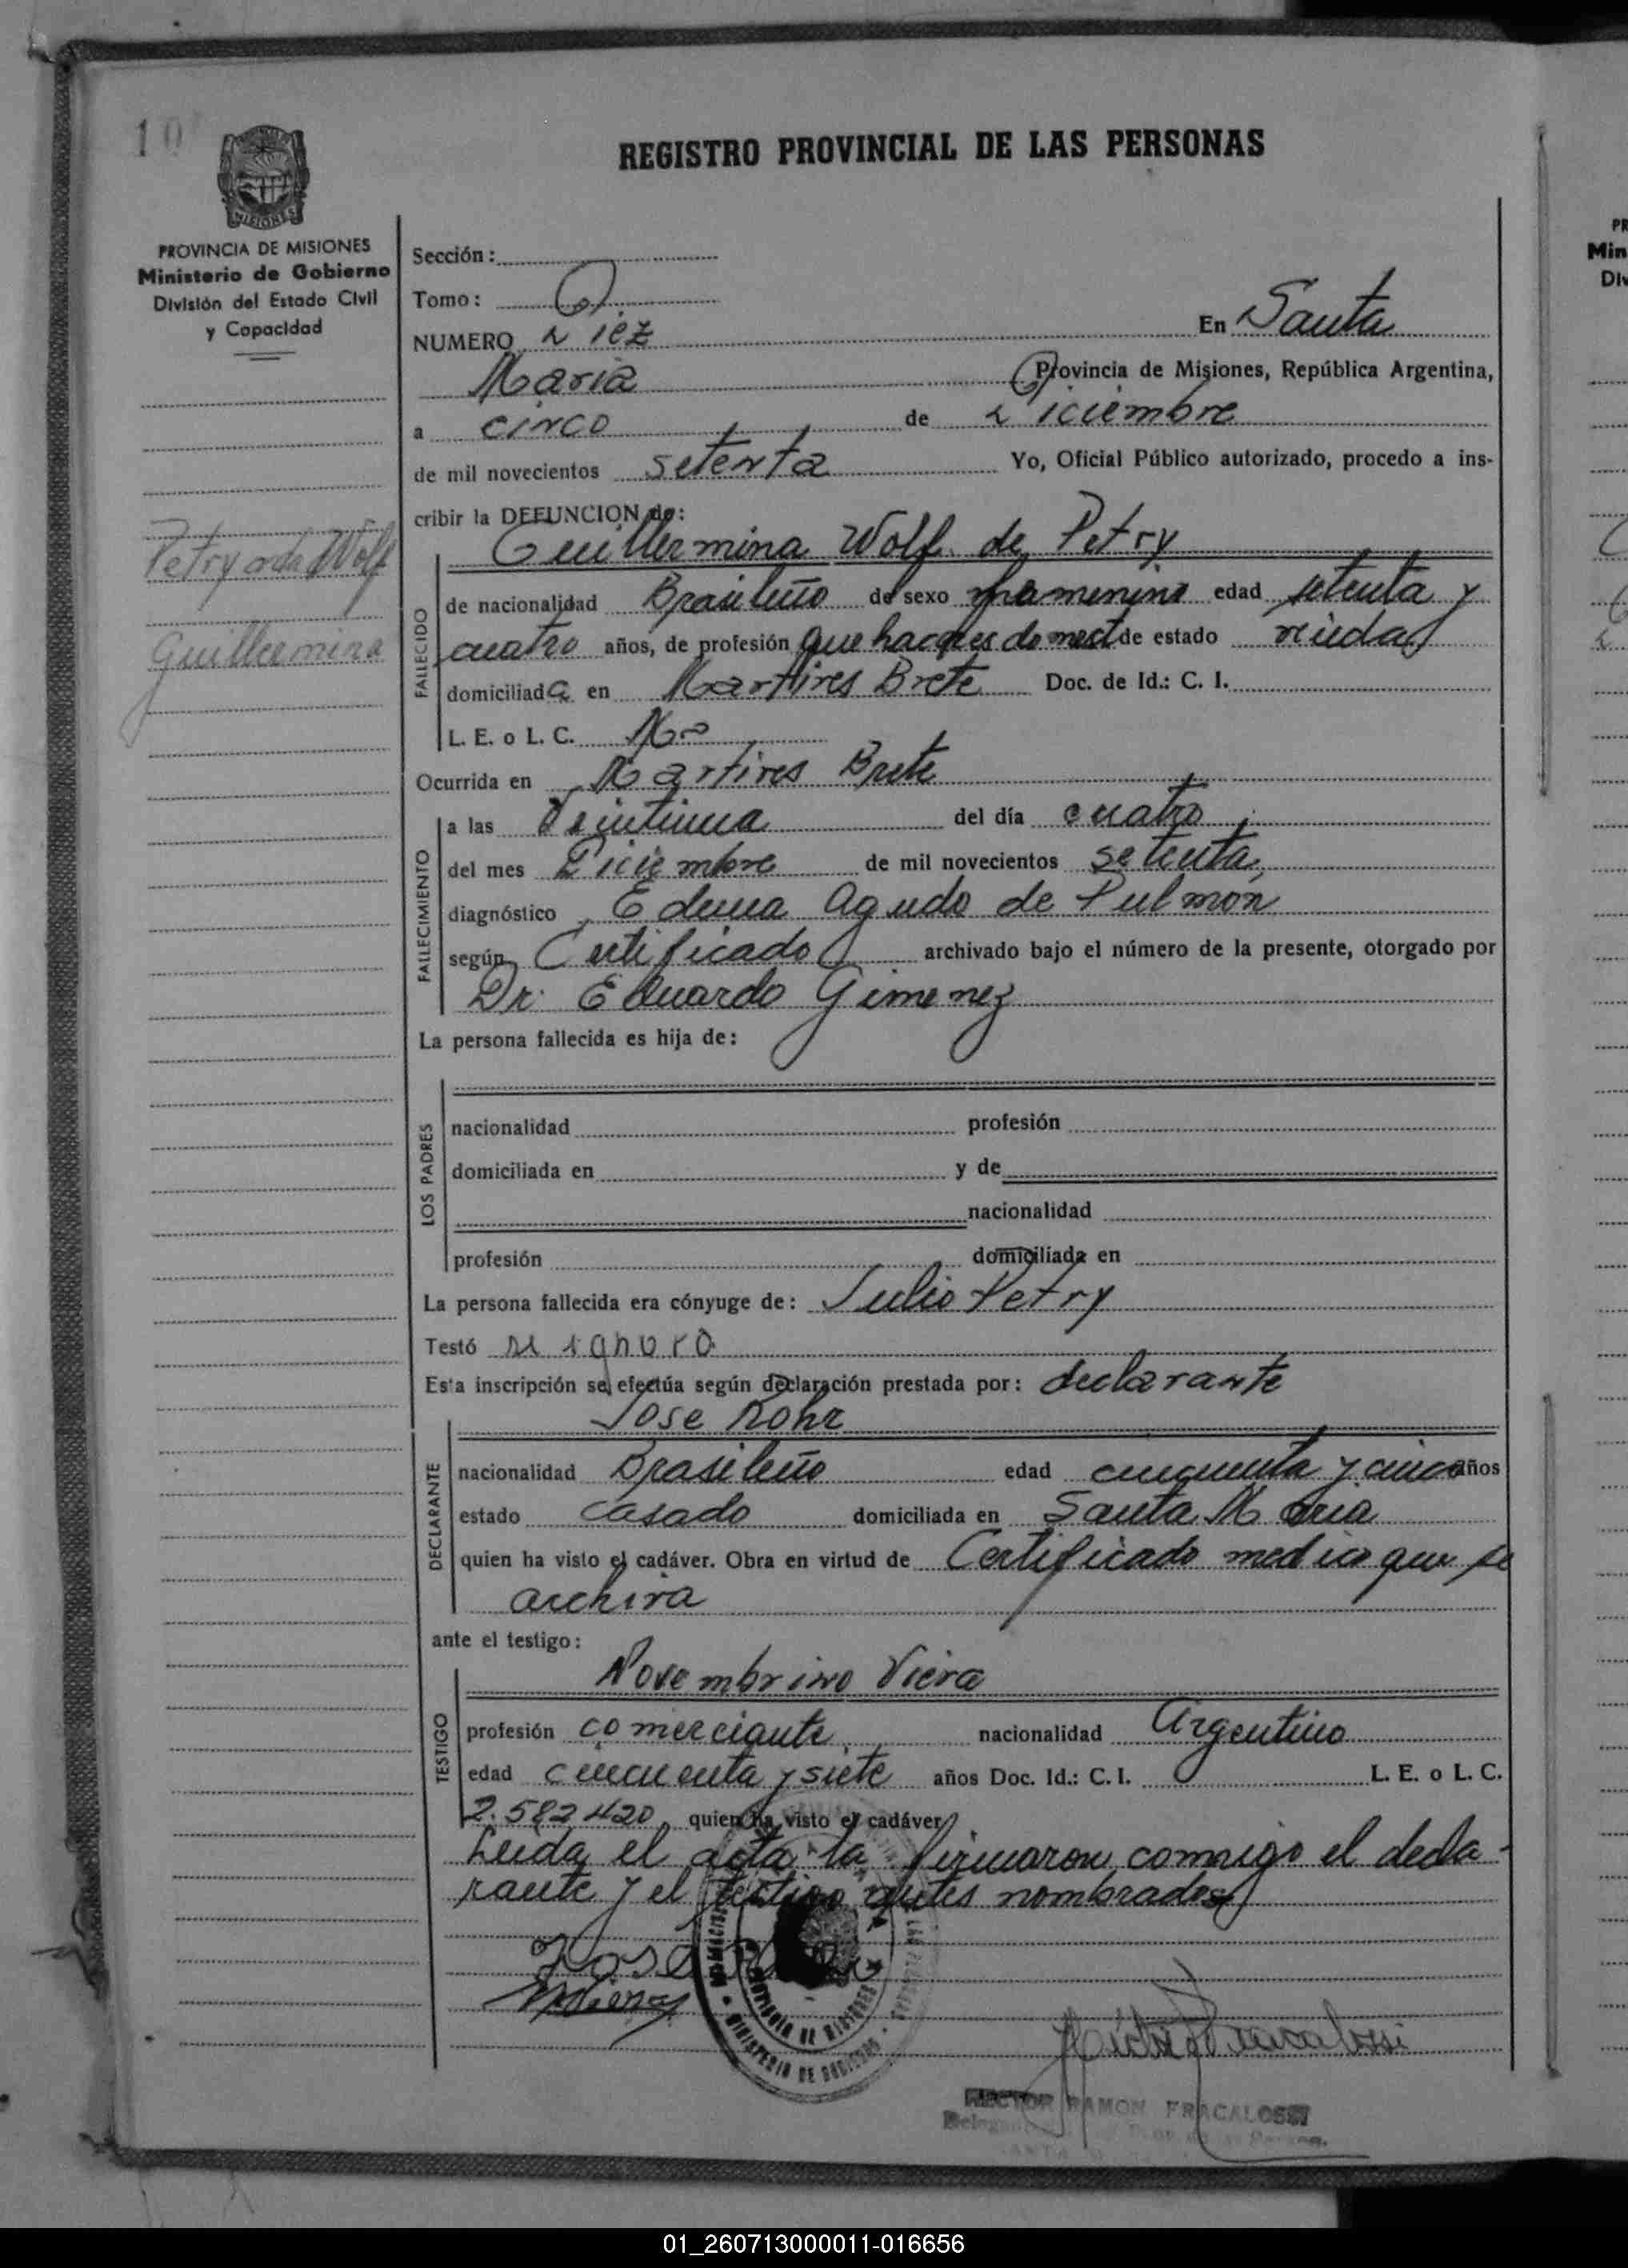 10
REGISTRO PROVINCIAL DE LAS PERSONAS
MISIONES
PROVINCIA DE MISIONES
Ministerio de Gobierno
División del Estado Civil
y Capacidad
Sección:
Tomo:
NUMERO Diez En Santa
Maria Provincia de Misiones, República Argentina,
a cinco de Diciembre
de mil novecientos setenta Yo, Oficial Público autorizado, procedo a ins-
cribir la DEFUNCION de:
Petry vda Wolf
Guillermina
Guillermina Wolf de Petry
FALLECIDO
de nacionalidad Brasileño de sexo edad setenta y
cuatro años, de profesión que haceres domest de estado viuda
domiciliada en Martires Brete Doc. de Id.: C. I.
L. E. o L. C. No
Ocurrida en Martires Brete
FALLECIMIENTO
a las Veintiuna del día cuatro
del mes Diciembre de mil novecientos setenta,
diagnóstico Edema Agudo de Pulmon
según Certificado archivado bajo el número de la presente, otorgado por
Dr. Eduardo Gimenez
La persona fallecida es hija de:
LOS PADRES
nacionalidad profesión
domiciliada en y de
nacionalidad
profesión domiciliada en
La persona fallecida era cónyuge de: Julio Petry
Testó se ignora
Esta inscripción se efectúa según declaración prestada por: declarante
Jose Rohr
DECLARANTE
nacionalidad Brasileño edad cincuenta y cinco años
estado casado domiciliada en Santa Maria
quien ha visto el cadáver. Obra en virtud de Certificado medico que se
archiva
ante el testigo:
Novembrino Viera
TESTIGO
profesión comerciante nacionalidad Argentino
edad cincuenta y siete años Doc. Id.: C. I. L. E. o L. C.
2.582420 quien ha visto el cadáver
Leida el acta la firmaron conmigo el decla-
rante y el testigo antes nombrados
Jose
PROVINCIA DE MISIONES
MINISTERIO DE GOBIERNO
HECTOR RAMON FRACALOSSI
01_260713000011-016656